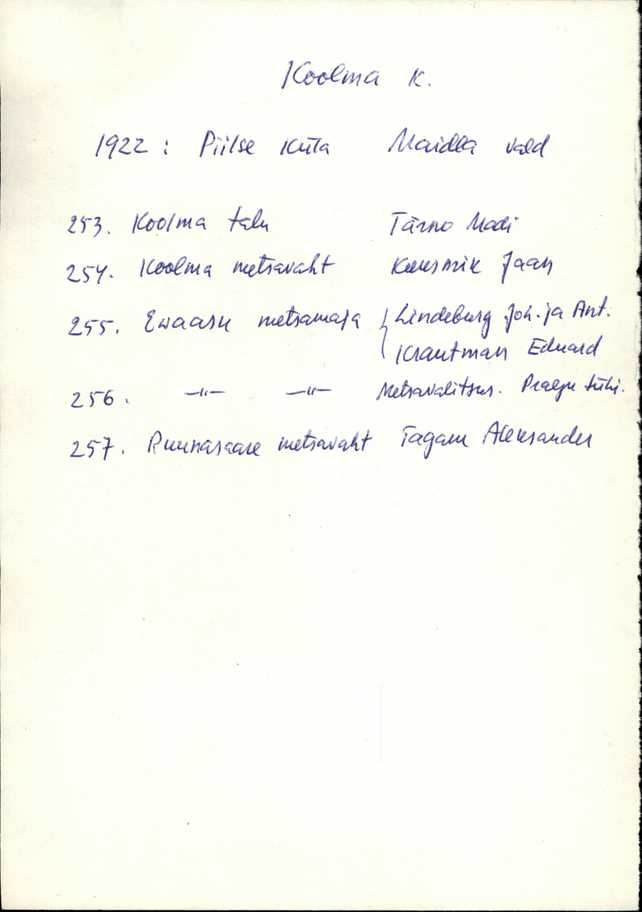 Koolma k.
1922 : Piilse küla Maidla vald
253. Koolma talu Tärno Madi
254. Koolma metsavaht Kuusmik Jaan
255. Ewaasu metsamaja Lindeburg Joh. ja Ant.
Krautman Eduard
256. -"- -"- Metsavalitsus. Praegu tühi.
257. Ruunasaare metsavaht Tagam Aleksander